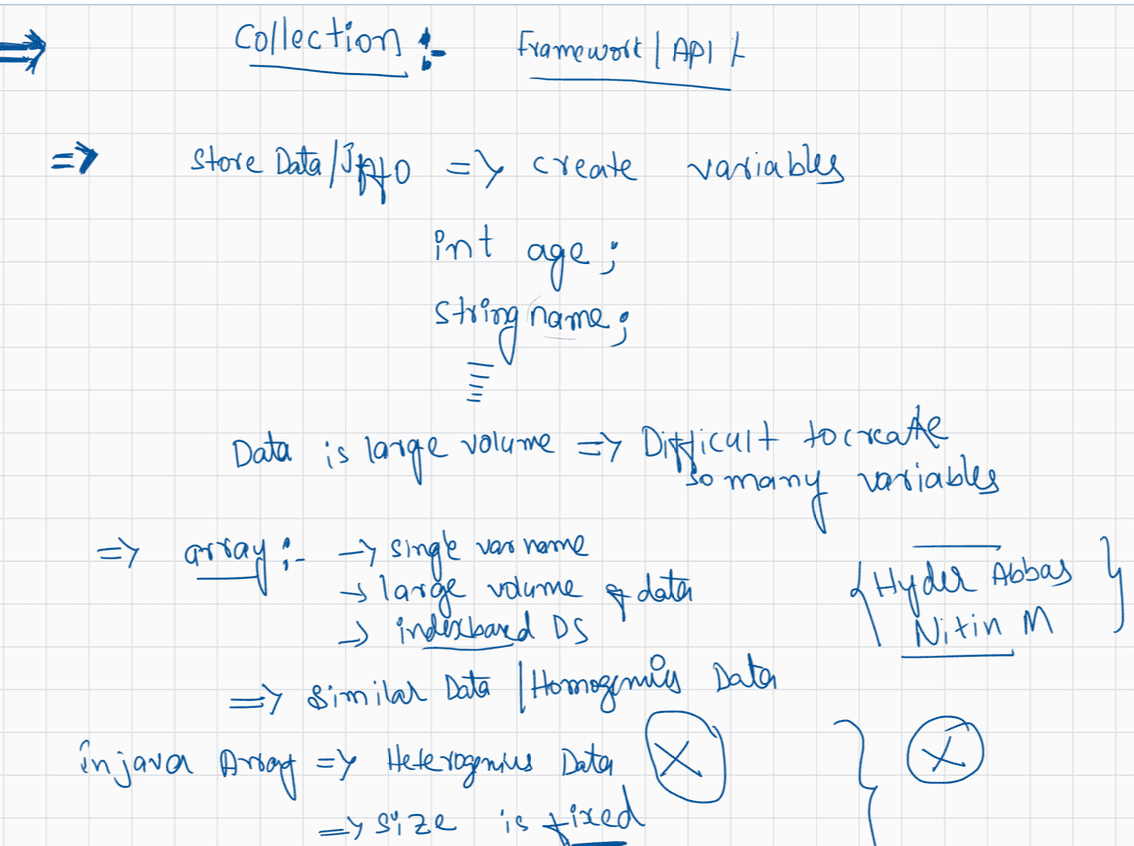 => Collection :- Framework | API :-
=> Store Data/Info => create variables
int age;
string name;
Data is large volume => Difficult to create
so many variables
=> array :- -> single var name
-> large volume of data
-> indexbased DS
{Hyder Abbas
Nitin M}
=> Similar Data | Homogenius Data
in java Array => Heterogenius Data X } X
=> size is fixed